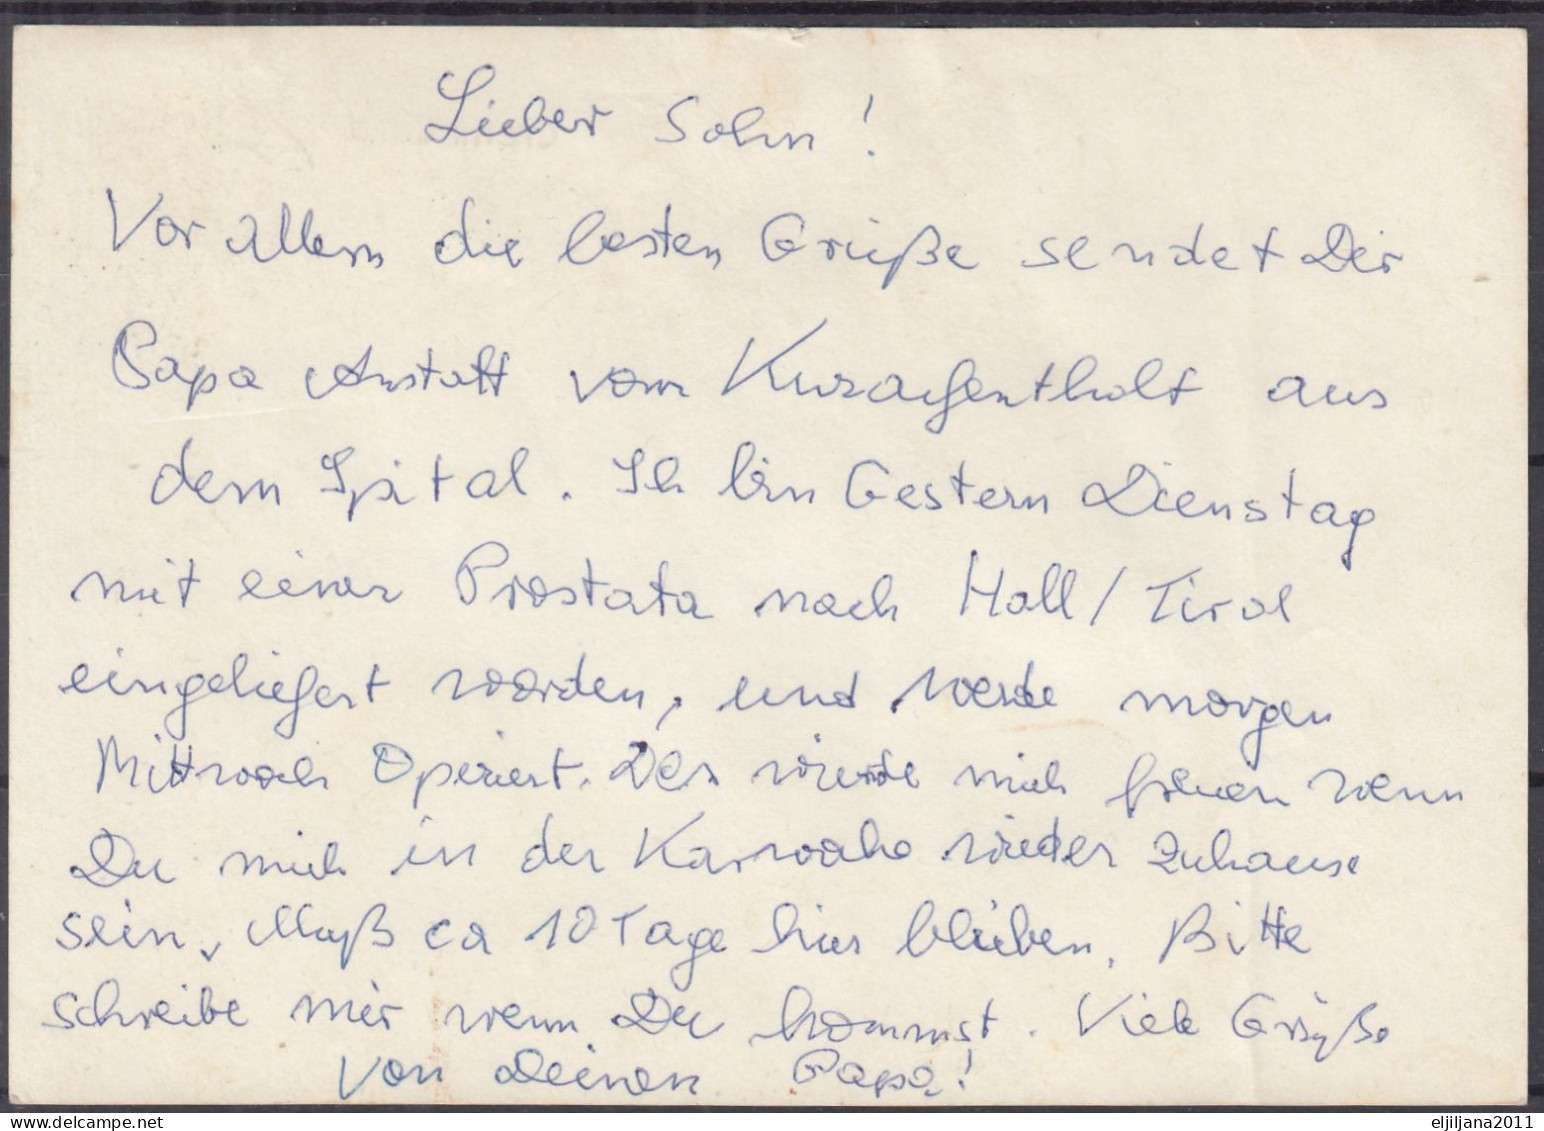 Lieber Sohn!
Vor allem die besten Grüße sendet Dir
Papa Anstatt vom Kuraufenthalt aus
dem Spital. Ich bin Gestern Dienstag
mit einer Prostata nach Hall/Tirol
eingeliefert worden, und werde morgen
Mittwoch Operiert. Der würde mich freuen wenn
Du mich in der Karwoche wieder Zuhause
sein. Muß ca 10 Tage hier bleiben. Bitte
schreibe mir wenn Du kommst. Viele Grüße
von Deinen Papa!
eljiljana2011